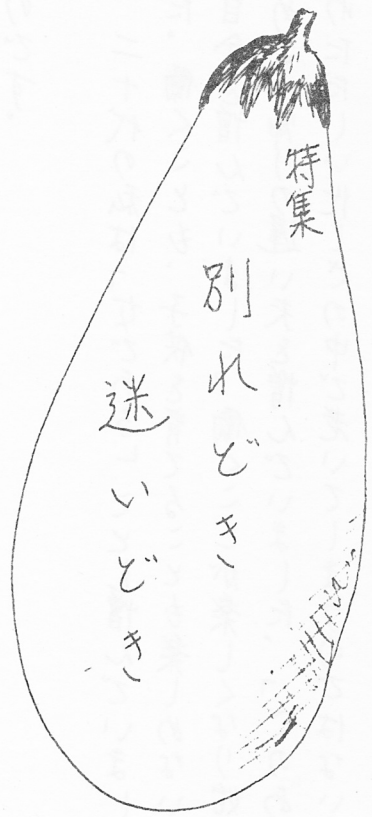 特集
別れどき
迷いどき